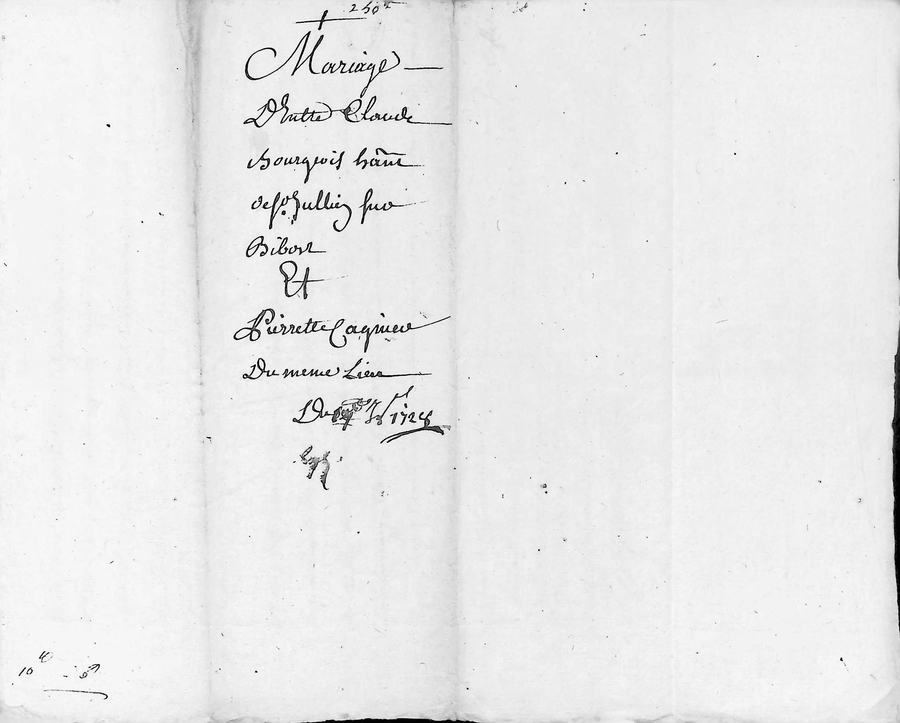 Mariage
D'Entre Claude
Bourgeois hãnt
de St Jullien sur
Bibost
Et
Pierrette Cagnieu
Du meme Lieu
Du 1728
10